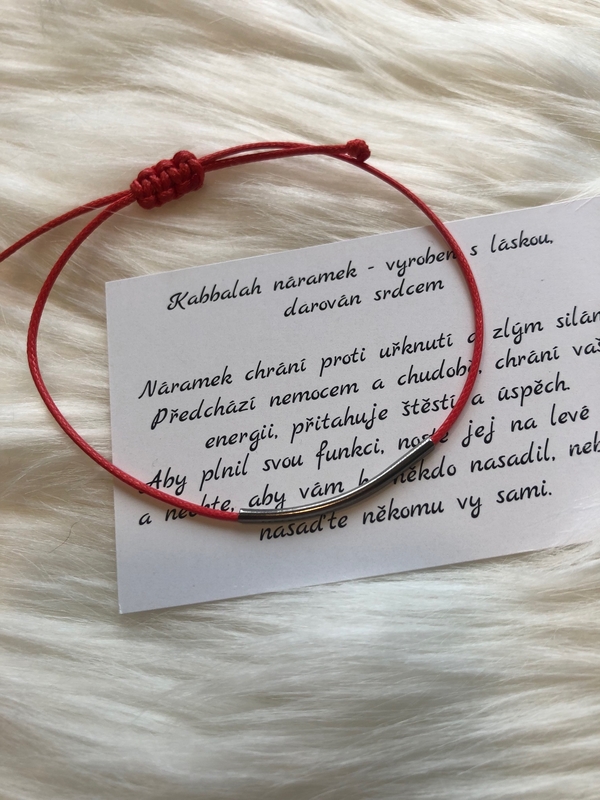 Kabbalah náramek - vyroben s láskou,
darován srdcem
Náramek chrání proti uřknutí a zlým silám
Předchází nemocem a chudobě, chrání vaš
energii, přitahuje štěstí a úspěch.
Aby plnil svou funkci, noste jej na levé
a nechte, aby vám ho někdo nasadil, neb
nasaďte někomu vy sami.